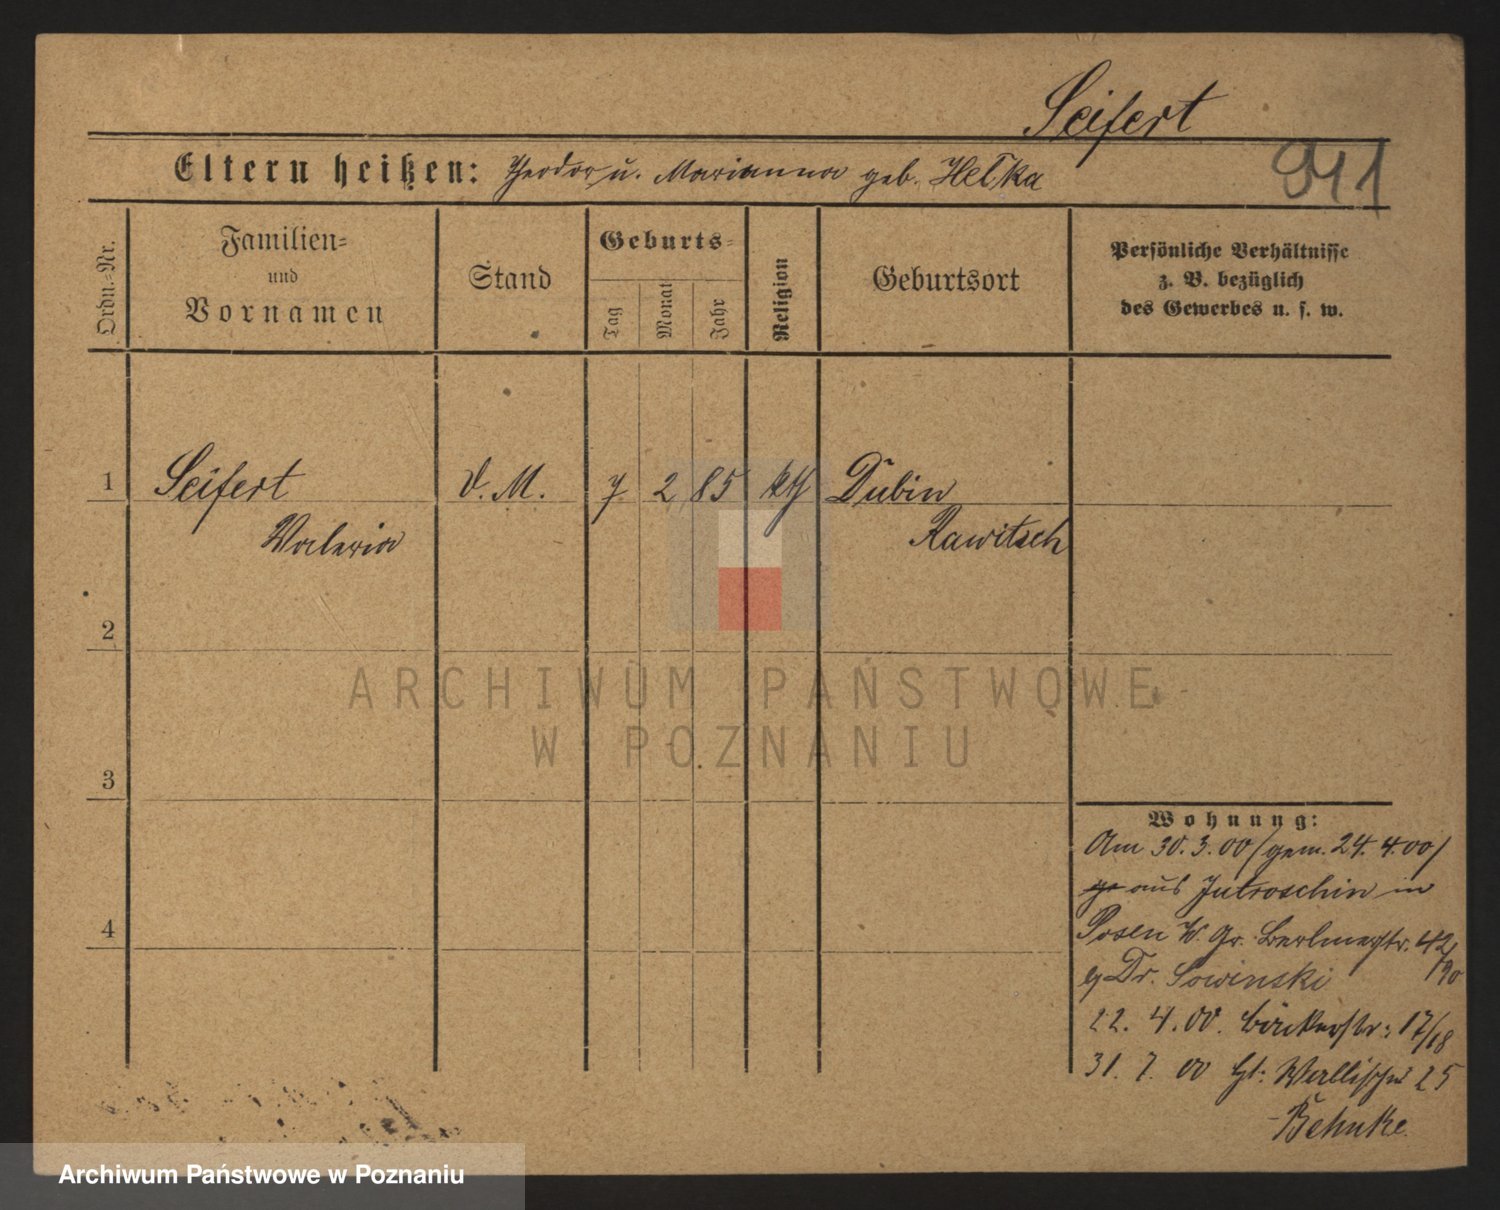 Seifert
Eltern heißen: Theodor u. Marianna geb. Hetka
941
Ordn.-Nr.
Familien-
und
Vornamen
Stand
Geburts-
Tag
Monat
Jahr
Religion
Geburtsort
Persönliche Verhältnisse
z. B. bezüglich
des Gewerbes u. s. w.
1 Seifert d. M. 7 2 85 kth Dubin
Valeria Rawitsch
2
ARCHIWUM PAŃSTWOWE
W POZNANIU
3
Wohnung:
Am 30.3.00 / gem. 24.4.00 /
aus Jutroschin in
4
Posen W. Gr. Berlinerstr. 42
Dr. Sowinski
22. 4. 00. Bäckerstr: 17/18
31. 7. 00 Wallischei 25
Behnke
Archiwum Państwowe w Poznaniu